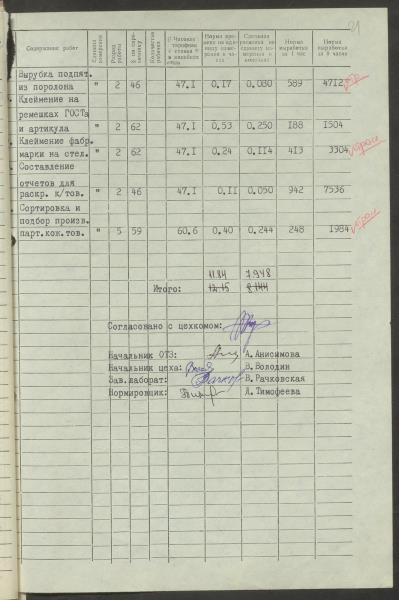 21
Содержание работ | Единица измерения | Разряд работы | § по справочнику | Количество рабочих | Часовая тарифная ставка | Норма времени на единицу измерения в часах | Сдельная расценка на единицу измерения в копейках | Норма выработки за 1 час | Норма выработки за 8 часов
Вырубка подпят.
из поролона " 2 46 47.I 0.I7 0.080 589 4712
Клеймение на
ремешках ГОСТа
и артикула " 2 62 47.I 0.53 0.250 I88 I504
Клеймение фабр.
марки на стел. " 2 62 47.I 0.24 0.II4 4I3 3304
Составление
отчетов для
раскр. к/тов. " 2 46 47.I 0.II 0.050 942 7536
Сортировка и
подбор произв.
парт.кож.тов. " 5 59 60.6 0.40 0.244 248 I984
11.84 7.948
Итого: 12.15 8.144
Согласовано с цехкомом:
Начальник ОТЗ: А.Анисимова
Начальник цеха: В.Володин
Зав.лаборат: В.Рачковская
Нормировщик: Л.Тимофеева